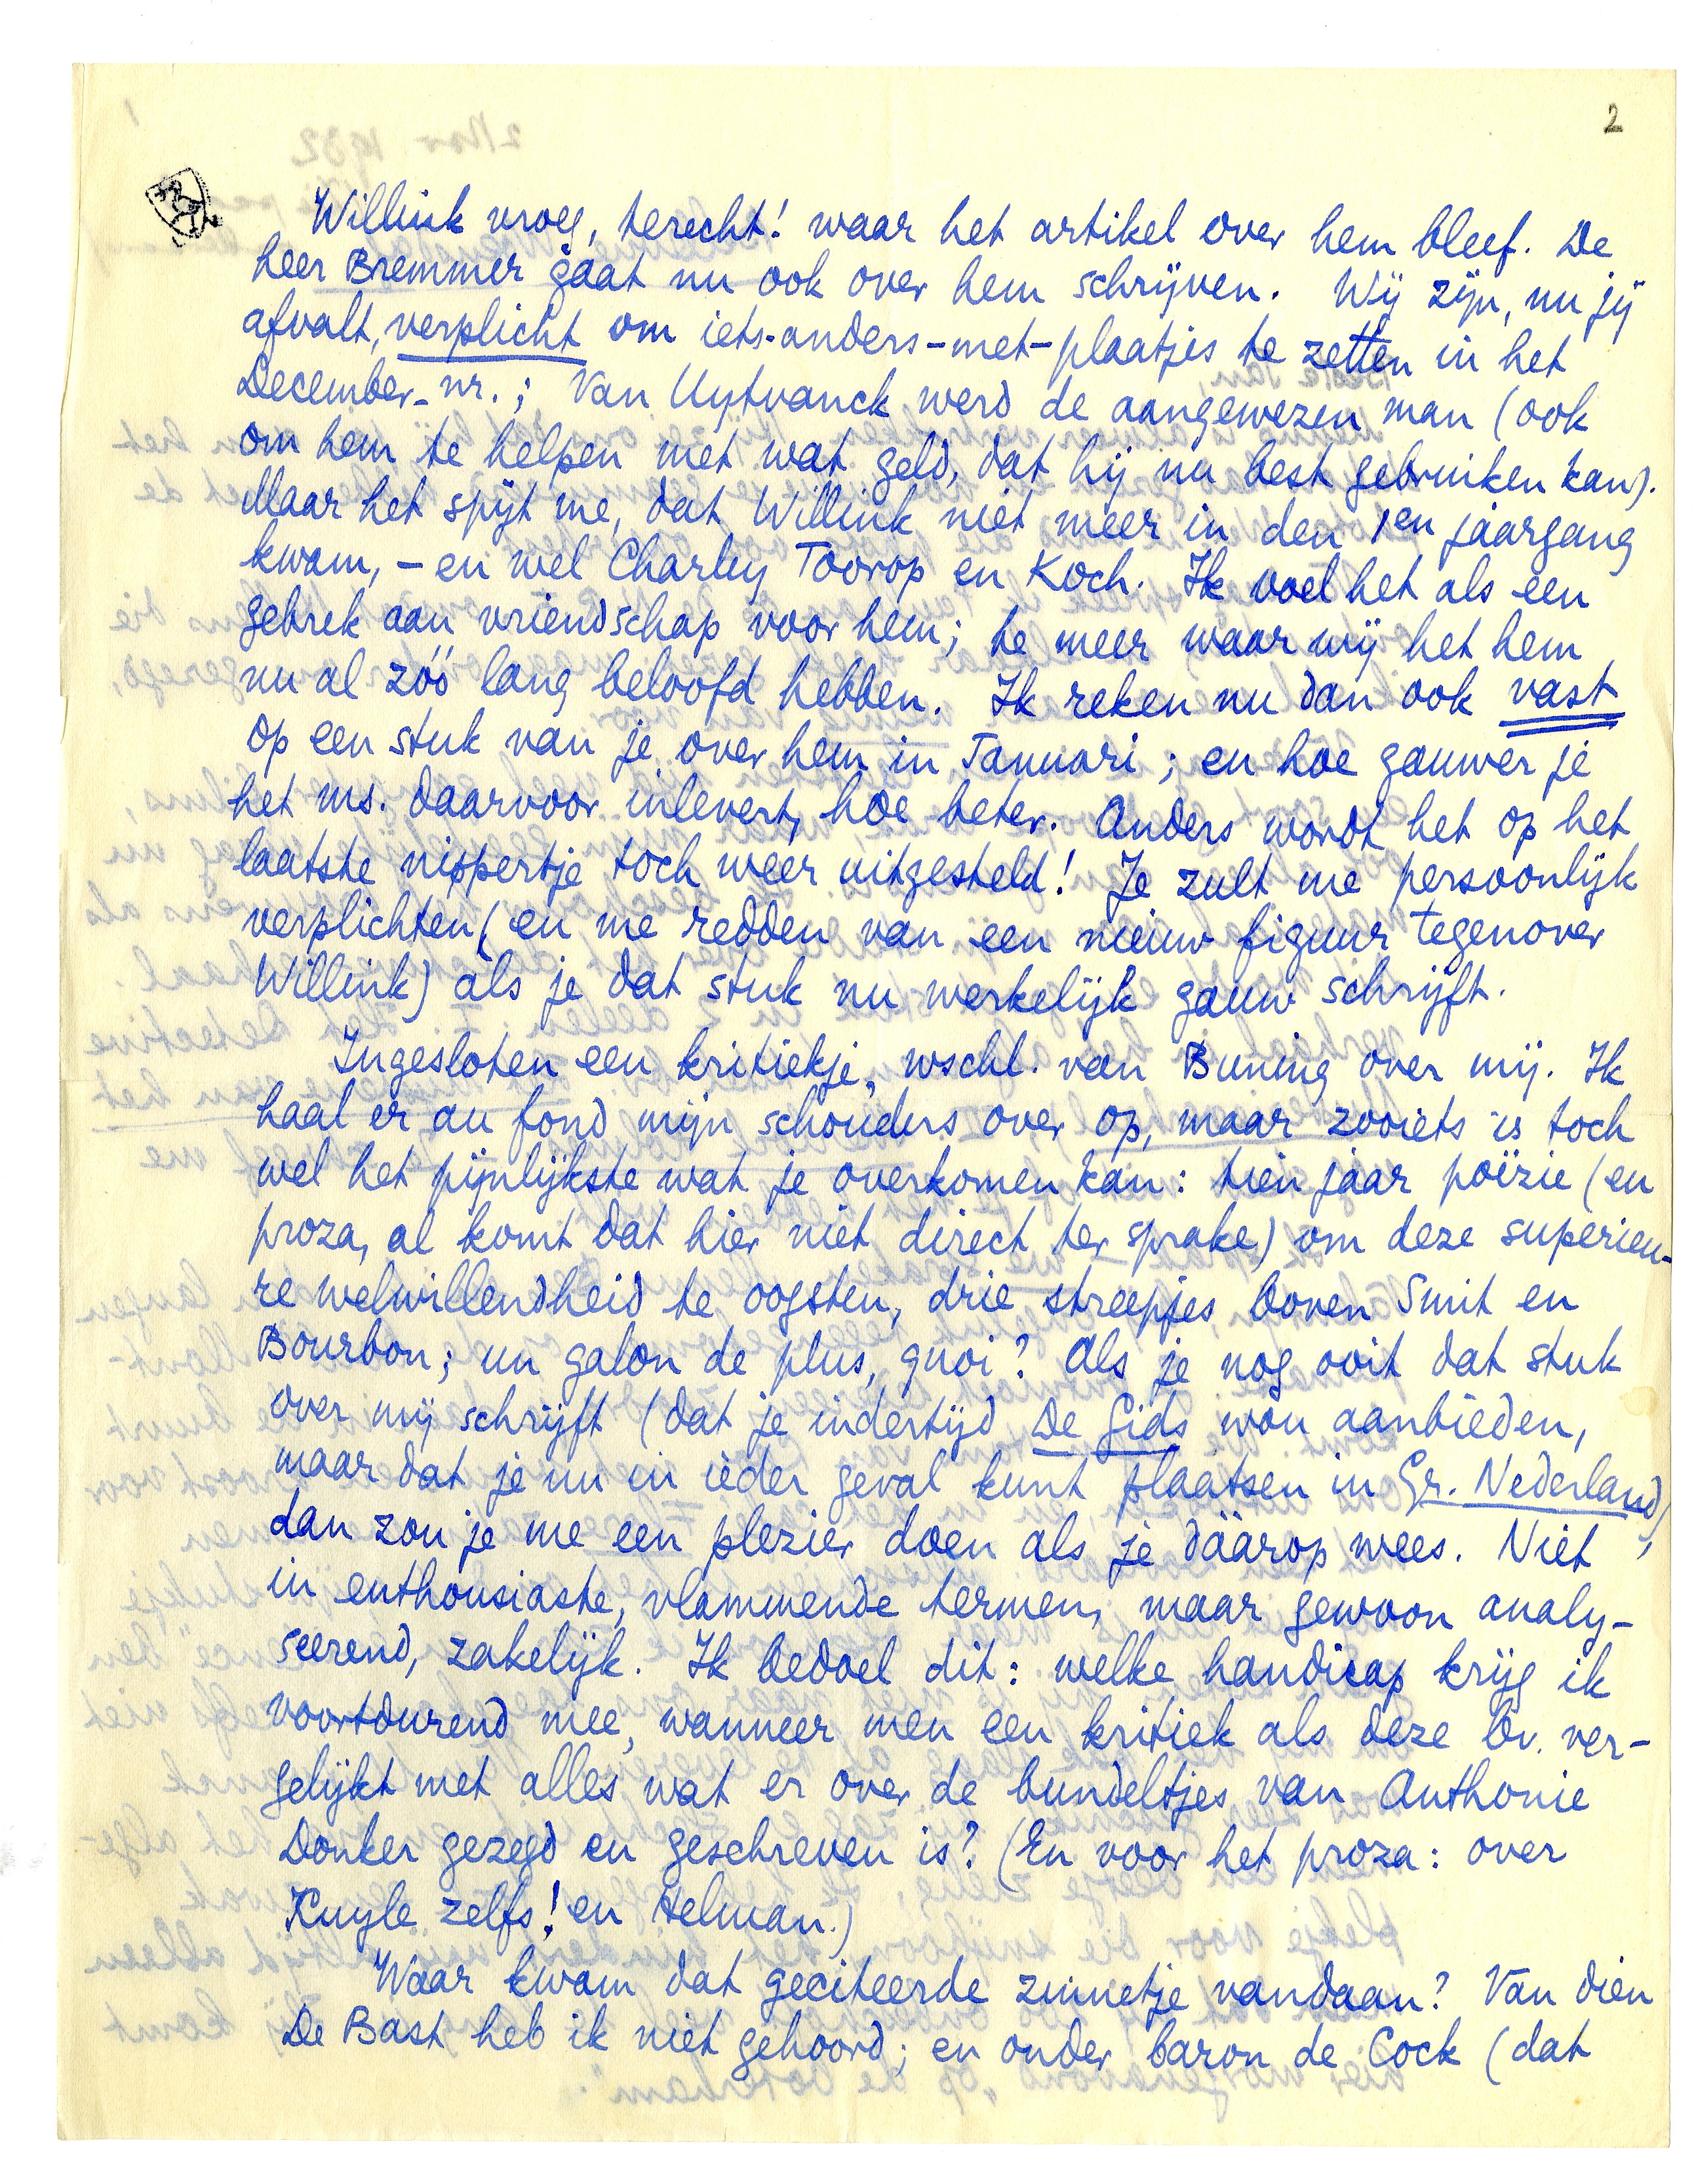 2
Willink vroeg, terecht! waar het artikel over hem bleef. De
heer Bremmer gaat nu ook over hem schrijven. Wij zijn, nu jij
afvalt, verplicht om iets-anders-met-plaatjes te zetten in het
December-nr.; Van Uytvanck werd de aangewezen man (ook
om hem te helpen met wat geld, dat hij nu best gebruiken kan).
Maar het spijt me, dat Willink niet meer in den 1en jaargang
kwam, - en wel Charley Toorop en Koch. Ik voel het als een
gebrek aan vriendschap voor hem; te meer waar wij het hem
nu al zóó lang beloofd hebben. Ik reken nu dan ook vast
op een stuk van je over hem in Januari; en hoe gauwer je
het ms. daarvoor inlevert, hoe beter. Anders wordt het op het
laatste nippertje toch weer uitgesteld! Je zult me persoonlijk
verplichten (en me redden van een nieuw figuur tegenover
Willink) als je dat stuk nu werkelijk gauw schrijft.
Ingesloten een kritiekje, wschl. van Buning over mij. Ik
haal er au fond mijn schouders over op, maar zooiets is toch
wel het pijnlijkste wat je overkomen kan: tien jaar poëzie (en
proza, al komt dat hier niet direct ter sprake) om deze superieu-
re welwillendheid te oogsten, drie streepjes boven Smit en
Bourbon; un galon de plus, quoi? Als je nog ooit dat stuk
over mij schrijft (dat je indertijd De Gids wou aanbieden,
maar dat je nu in ieder geval kunt plaatsen in Gr. Nederland),
dan zou je me een plezier doen als je dáárop wees. Niet
in enthousiaste, vlammende termen, maar gewoon analy-
seerend, zakelijk. Ik bedoel dit: welke handicap krijg ik
voortdurend mee, wanneer men een kritiek als deze bv. ver-
gelijkt met alles wat er over de bundeltjes van Anthonie
Donker gezegd en geschreven is? (En voor het proza: over
Kuyle zelfs! en Helman.)
Waar kwam dat geciteerde zinnetje vandaan? Van dien
De Bast heb ik niet gehoord; en onder baron de Cock (dat